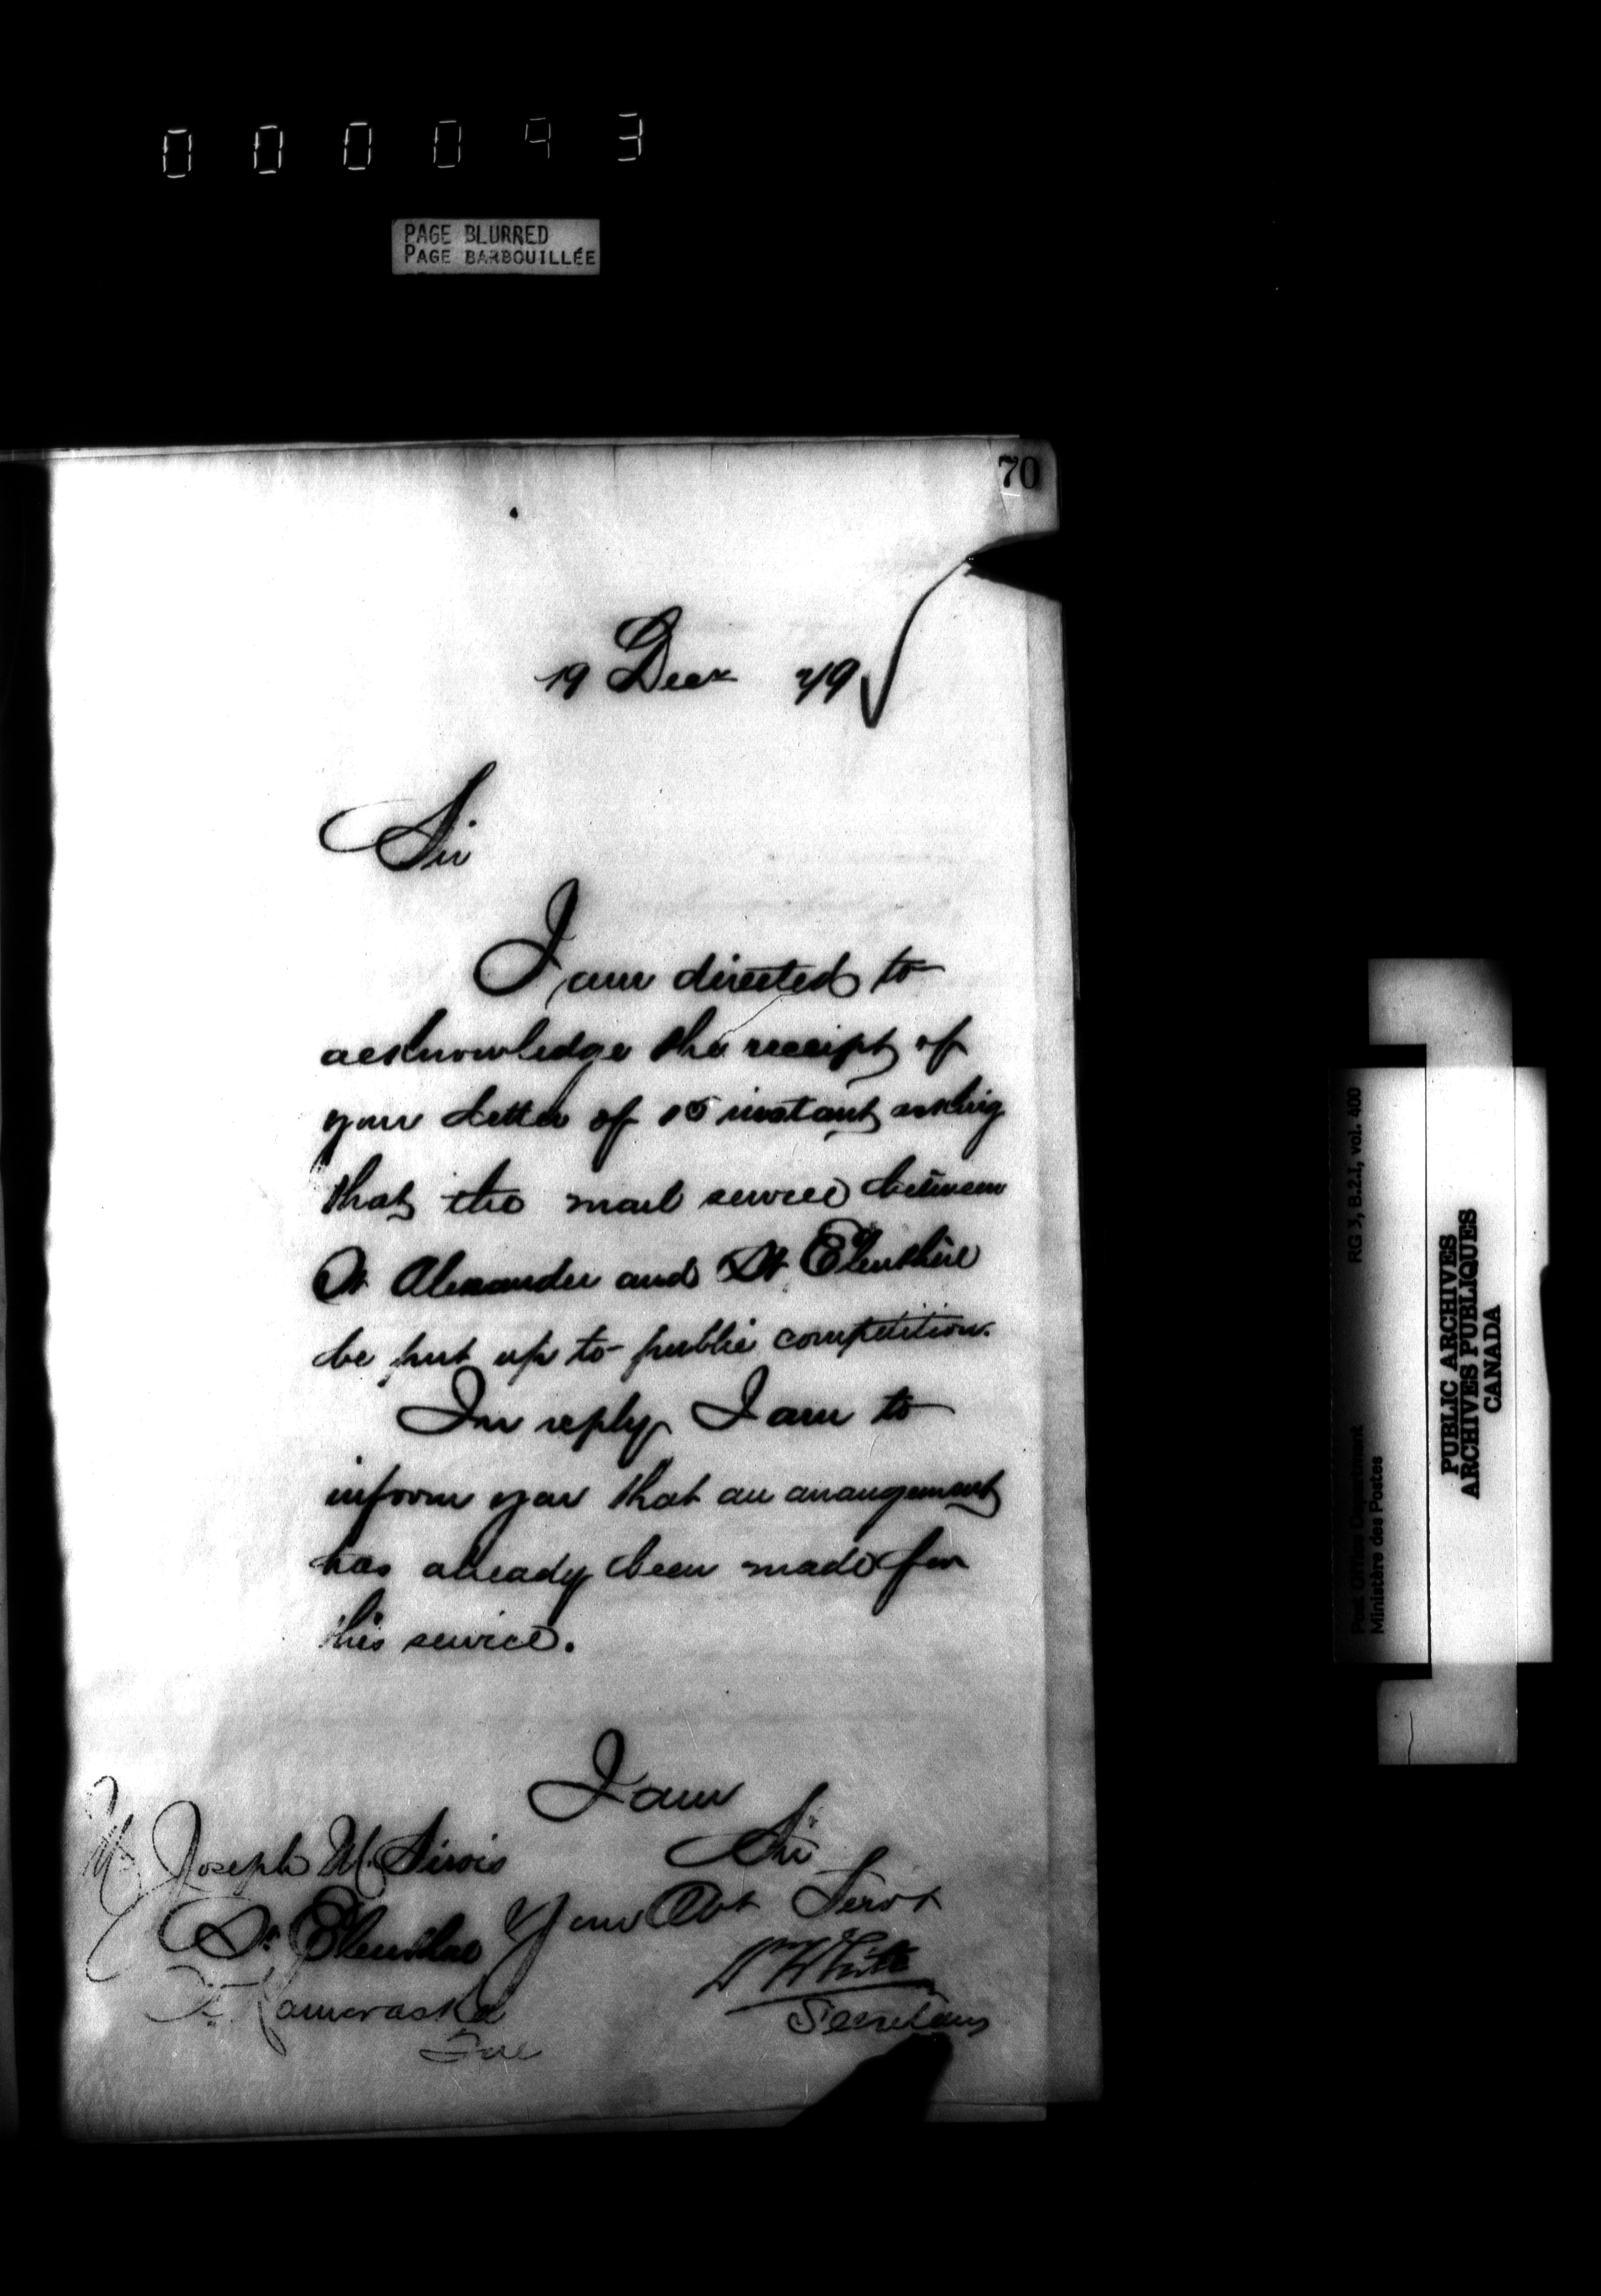 000093
PAGE BLURRED
PAGE BARBOUILLÉE
70
19 Decr 79
Sir
I am directed to
acknowledge the receipt of
your letter of 15 instant asking
that the mail service between
St Alexander and St Eleuthère
be put up to public competition.
In reply I am to
inform you that an arrangement
has already been made for
this service.
I am
Sir
Your Obt Servt
Wm White
Secretary
Mr Joseph M. Sirois
St Eleuthere
Kamouraska
Que
RG 3, B.2.I, vol. 400
Post Office Department
Ministère des Postes
PUBLIC ARCHIVES
ARCHIVES PUBLIQUES
CANADA